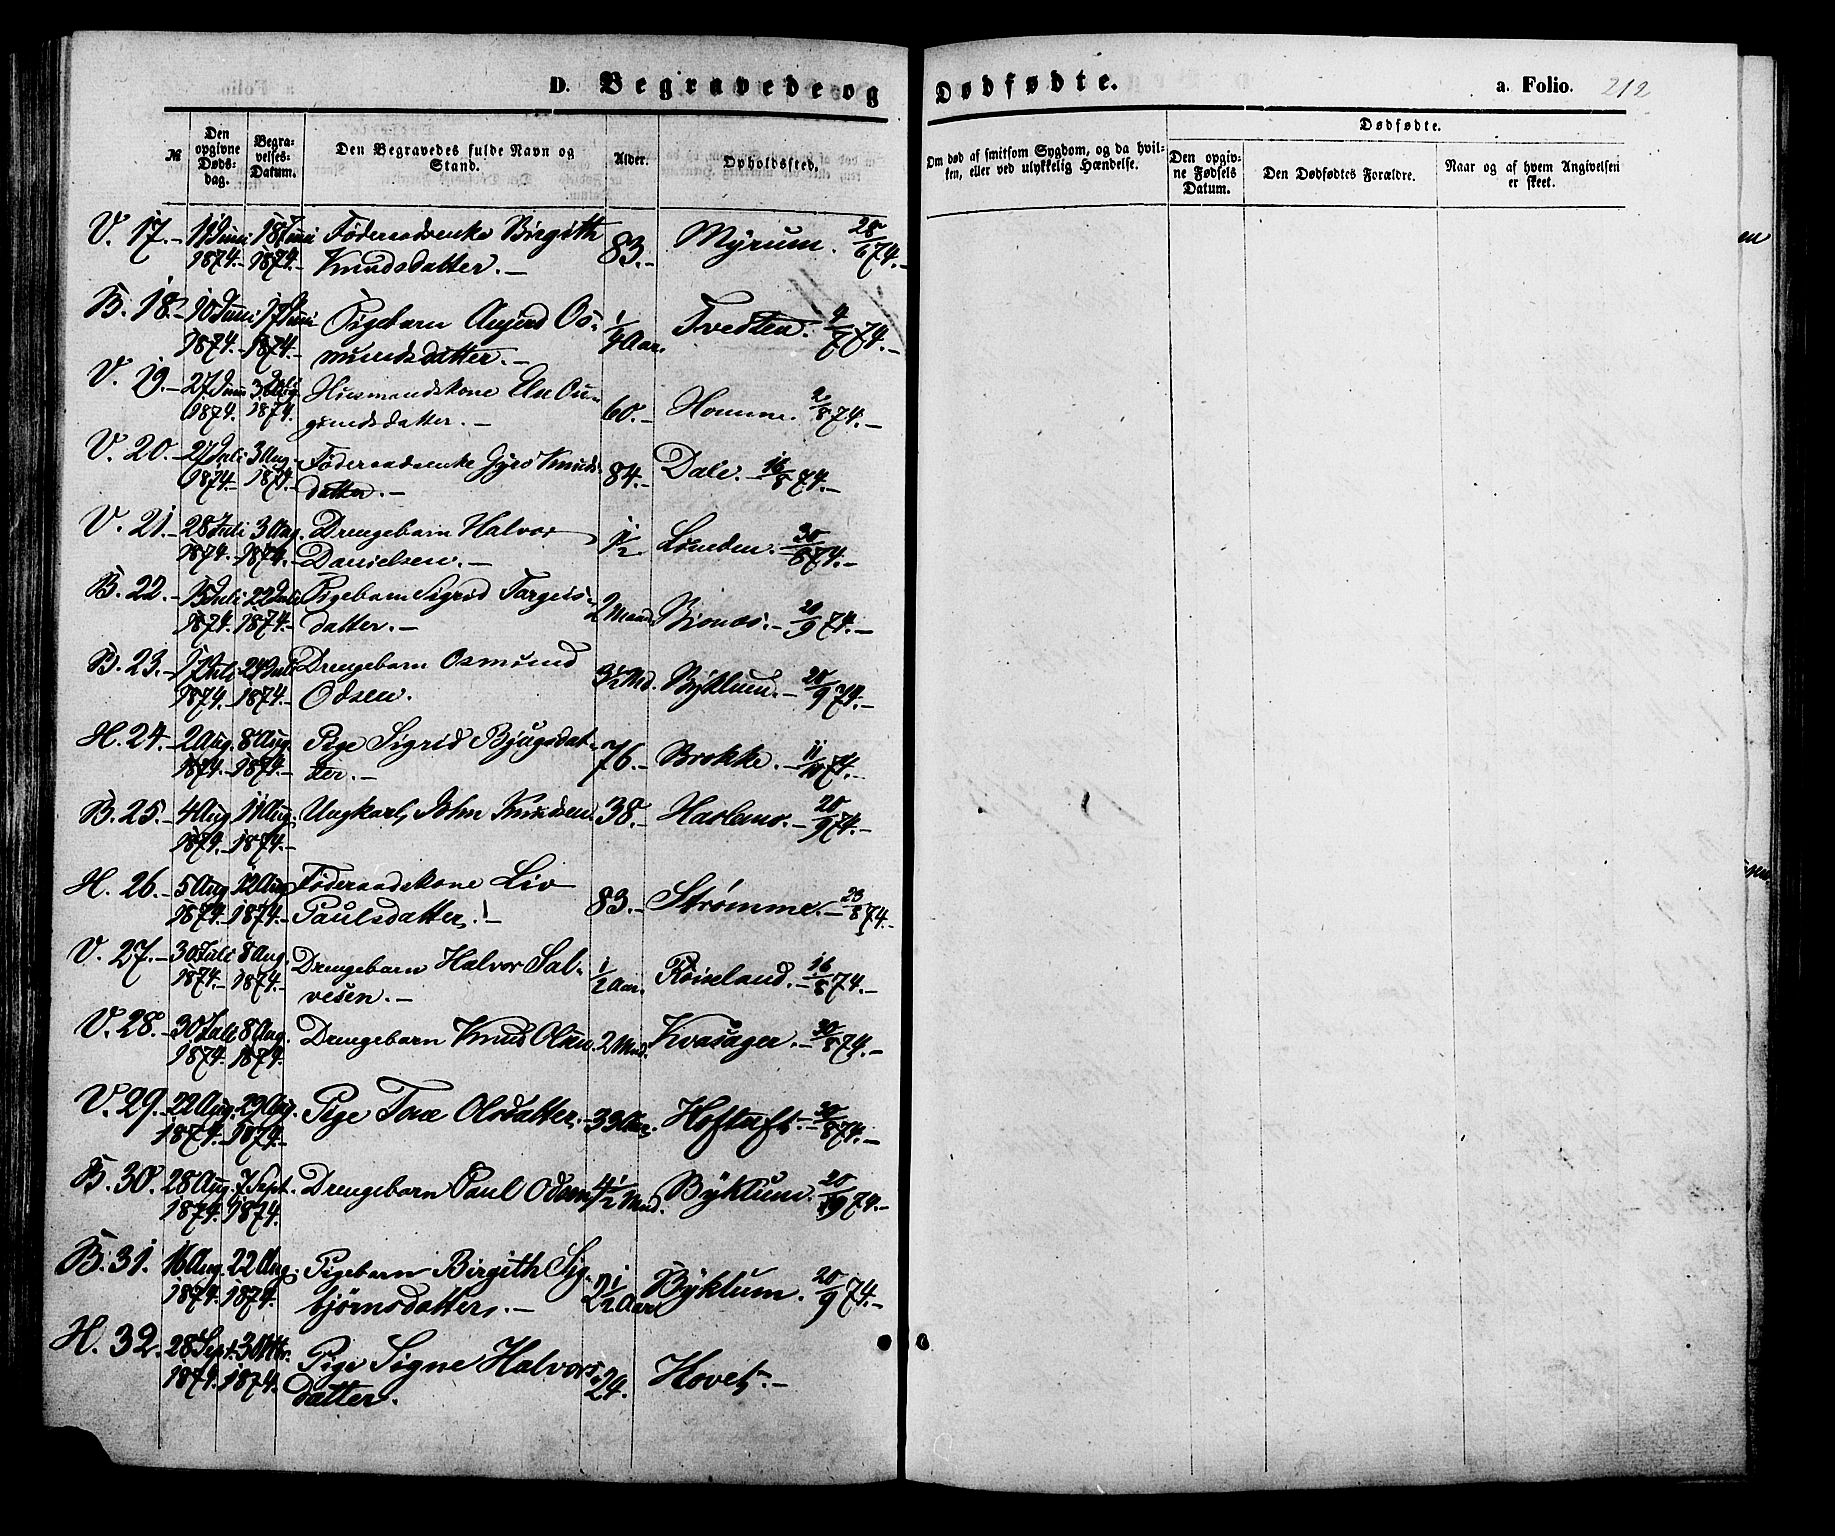 D. Begravede og Dødfødte. a. Folio. 212
№ Den opgivne Døds-dag. Begra-velses-Datum. Den Begravedes fulde Navn og Stand. Alder. Opholdssted. Om død af smitsom Sygdom, og da hvil-ken, eller ved ulykkelig Hændelse. Dødfødte. Den opgiv-ne Fødsels Datum. Den Dødfødtes Forældre. Naar og af hvem Angivelsen er skeet.
V. 17.- 11 Juni 18 Juni Föderaadsenke Birgith 83.- Myrum. 28/6 74.-
1874.- 1874.- Knudsdatter.-
B. 18.- 10 Juni 17 Juni Pigebarn Anjerd Os- 1/4 Aar. Tvedten. 4/7 74.-
1874.- 1874.- mundsdatter.-
V. 19.- 27 Juni Husmandskone Else 60.- Homme. 2/8 74.-
1874.- 1874. gundsdatter.-
V. 20.- 27 Juli 3 Aug. Föderaadsenke Gyro Knuds- 84.- Dale.- 16/8 74.-
1874.- 1874.- datter.-
V. 21.- 28 Juli 3 Aug. Drengebarn Halvor 1 1/2 Lunden.- 30/8 74.-
1874.- 1874.- Danielsen.-
B. 22.- 15 Juli 22 Juli Pigebarn Sigrid Targeis- 2 Maand. Bjonæs.- 20/9 74.-
1874.- 1874.- datter.-
B. 23.- 17 Juli 24 Juli Drengebarn Osmund 3 1/2 Md. Byklum.- 20/9 74.-
1874.- 1874.- Odsen.
H. 24.- 2 Aug. 8 Aug. Pige Sigrid Bjugsdat- 76.- Brokke.- 11/10 74.-
1874.- 1874.- ter.-
B. 25.- 4 Aug. 11 Aug. Ungkarl, John Knudsen. 38.- Haslemo.- 20/9 74.-
1874.- 1874.-
H. 26.- 5 Aug. 12 Aug. Föderaadskone Liv 83.- Strømme.- 23/8 74.-
1874.- 1874.- Paulsdatter.-
V. 27.- 30 Juli 8 Aug. Drengebarn Halvor Sal- 1/2 Aar. Röiseland.- 16/8 74.-
1874.- 1874.- vesen.-
V. 28.- 30 Juli 8 Aug. Drengebarn Knud Olsen. 2 Mnd. Kvasager.- 30/8 74.-
1874.- 1874.-
V. 29.- 22 Aug. 29 Aug. Pige Tore Olsdatter. 33 Aar. Hoftuft.- 30/8 74.-
1874.- 1874.-
B. 30. 28 Aug. 7 Sept. Drengebarn Paul Odsen 4 1/2 Mnd. Byklum. 20/9 74.-
1874. 1874.
B. 31. 16 Aug. 22 Aug. Pigebarn Birgith Sig- 2 1/2 Aar Byklum. 20/9 74.-
1874. 1874. björnsdatter.-
H. 32. 28 Sept. 3 Oktbr. Pige Signe Halvors- 24. Hovet.-
1874. 1874. datter.